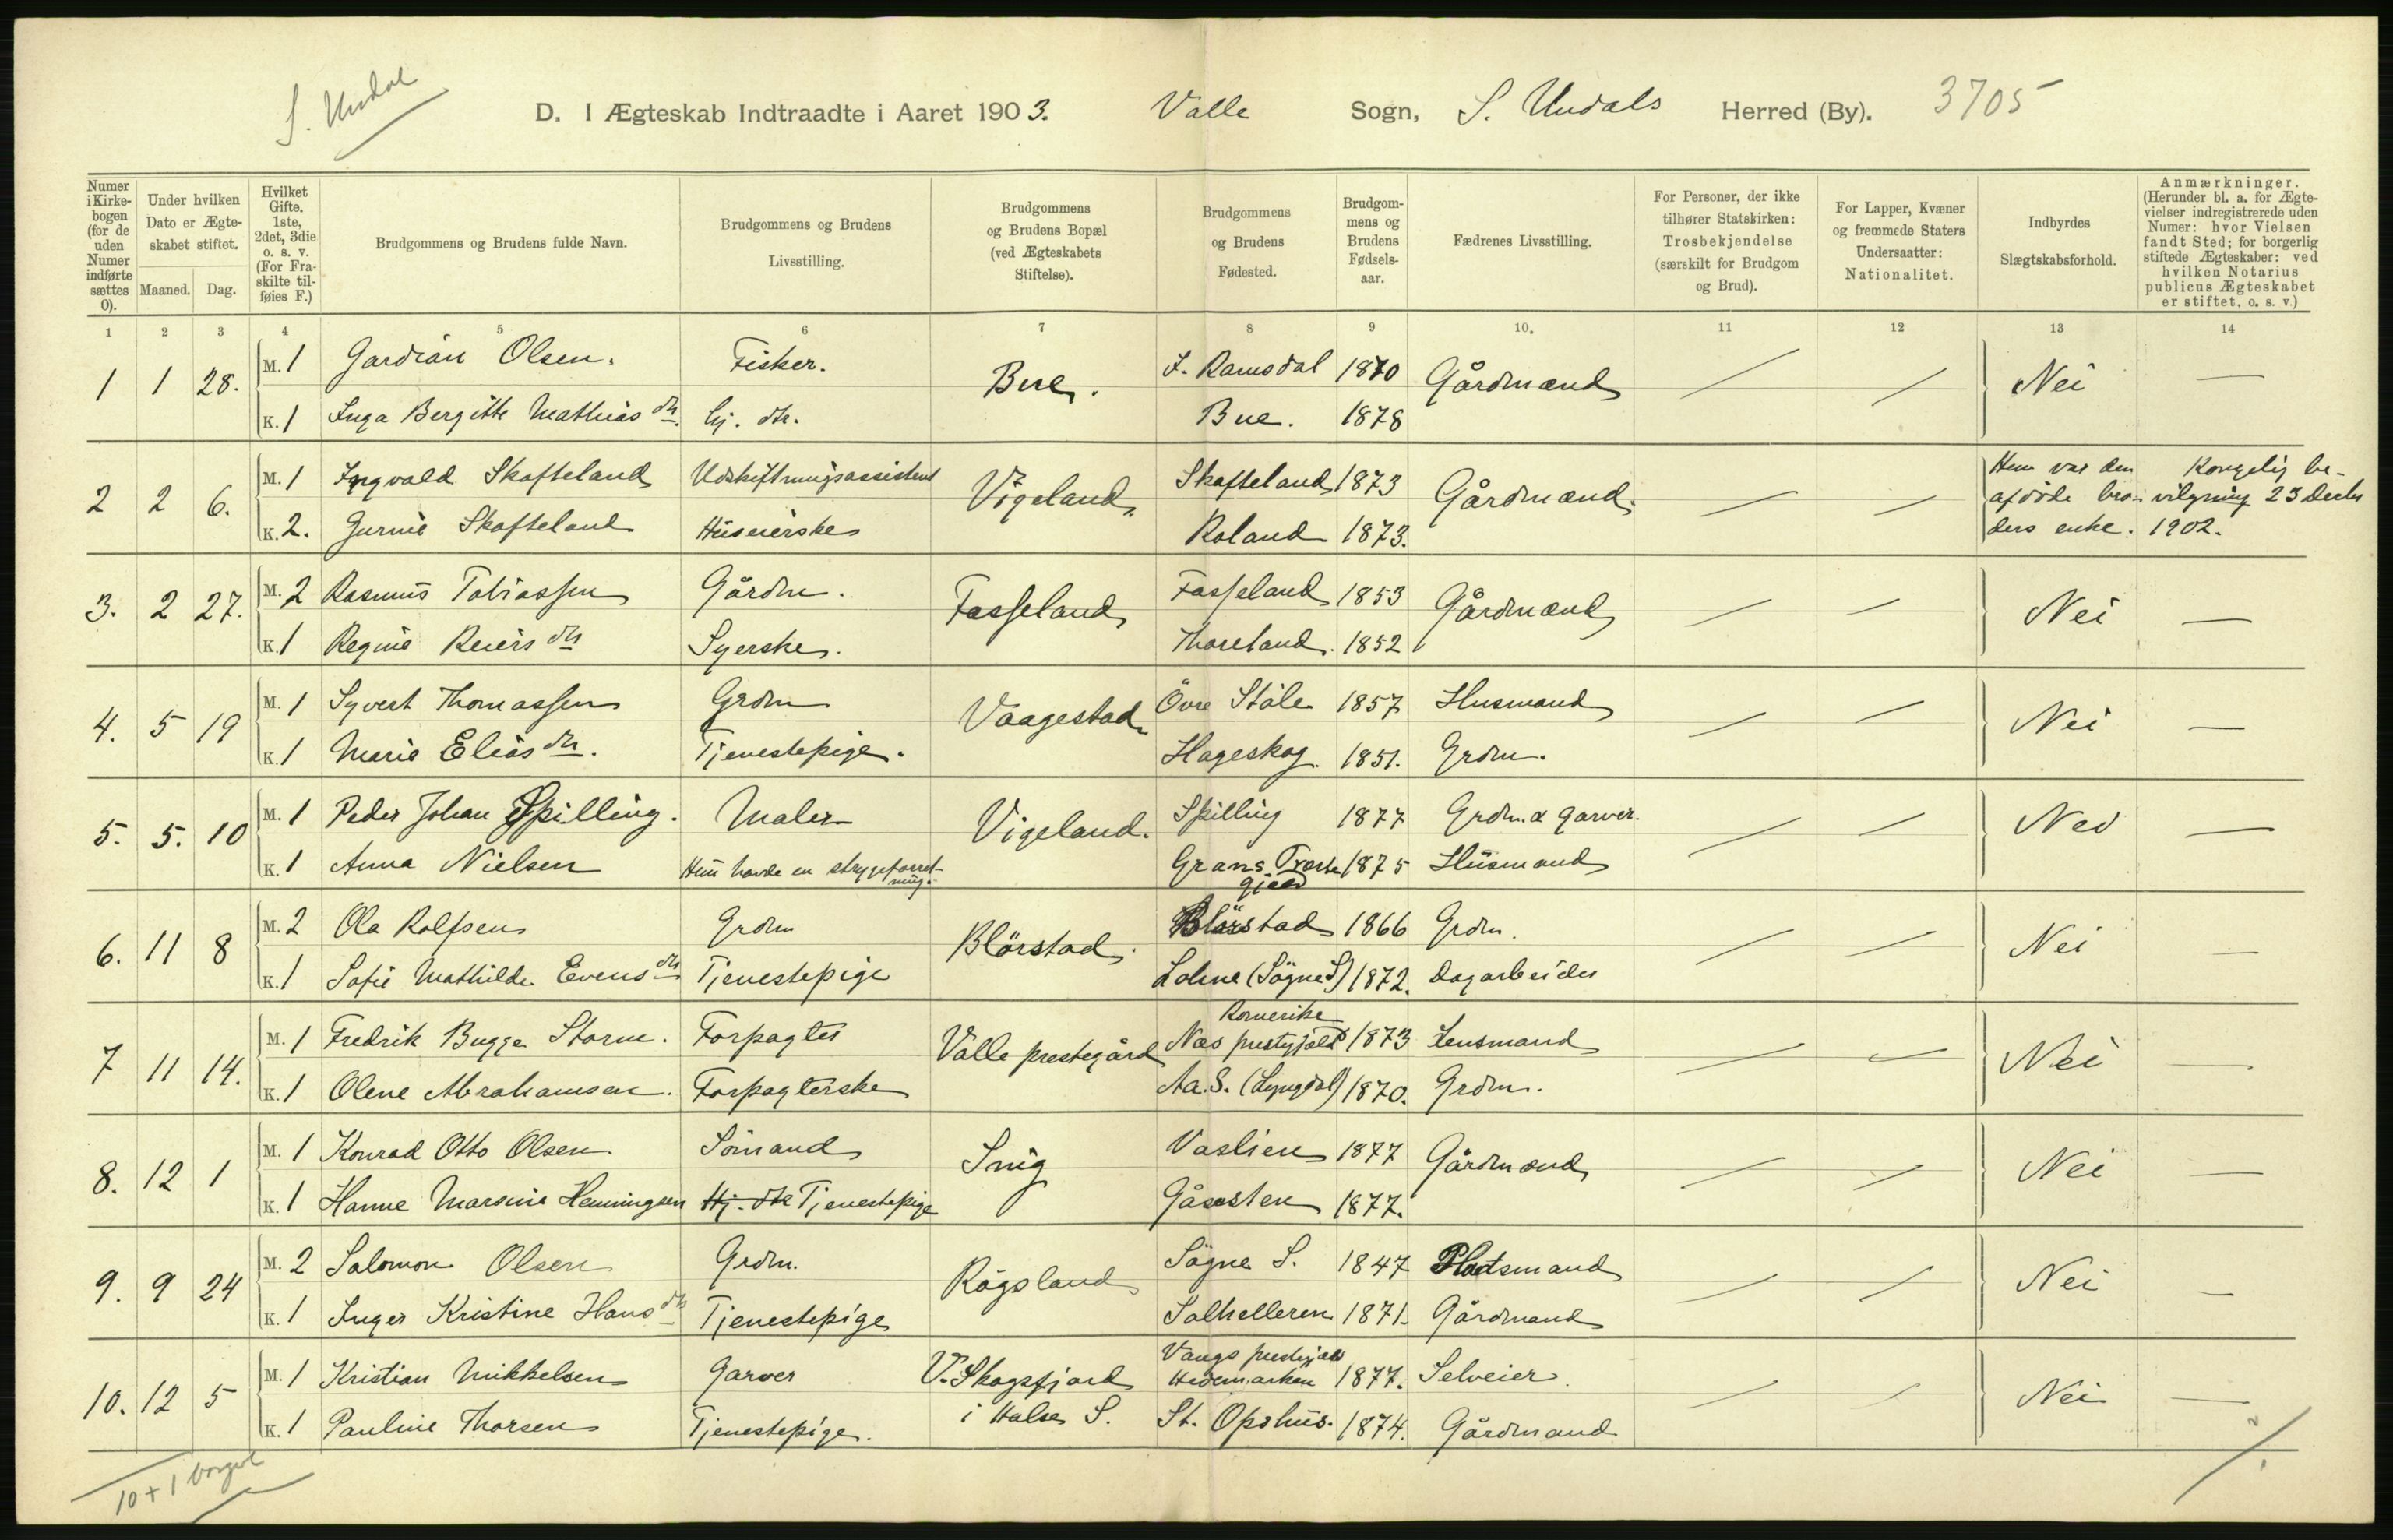 S. Undal
D. I Ægteskab Indtraadte i Aaret 1903. Valle Sogn, S. Undals Herred (By). 3705
Numer i Kirke-bogen (for de uden Numer indførte sættes 0).
Under hvilken Dato er Ægte-skabet stiftet.
Maaned. Dag.
Hvilket Gifte. 1ste, 2det, 3die o. s. v. (For Fra-skilte til-føies F.)
Brudgommens og Brudens fulde Navn.
Brudgommens og Brudens Livsstilling.
Brudgommens og Brudens Bopæl (ved Ægteskabets Stiftelse).
Brudgommens og Brudens Fødested.
Brudgom-mens og Brudens Fødsels-aar.
Fædrenes Livsstilling.
For Personer, der ikke tilhører Statskirken: Trosbekjendelse (særskilt for Brudgom og Brud).
For Lapper, Kvæner og fremmede Staters Undersaatter: Nationalitet.
Indbyrdes Slægtskabsforhold.
Anmærkninger. (Herunder bl. a. for Ægte-vielser indregistrerede uden Numer: hvor Vielsen fandt Sted; for borgerlig stiftede Ægteskaber: ved hvilken Notarius publicus Ægteskabet er stiftet, o. s. v.)
1 2 3 4 5 6 7 8 9 10. 11 12 13 14
1 1 28. M. 1 Gardian Olsen. Fisker. Bue. Ramsdal 1870 Gårdmænd Nei —
K. 1 Inga Bergitte Mathias dtr. hj. dtr. Bue. 1878
2 2 6. M. 1 Ingvald Skofteland Udskiftningsassistent Vigeland. Skofteland 1873 Gårdmænd. Hun var den afdøde bro-ders enke. Kongelig be-vilgning 23 Decbr 1902.
K. 2. Gurine Skofteland Huseierske Roland 1873.
3. 2 27. M. 2 Rasmus Tobiassen Gårdm. Fasseland Fasseland 1853 Gårdmænd Nei —
K. 1 Regine Reiers dtr Syerske. Thoreland. 1852
4. 5 19 M. 1 Syvert Thomassen Grdm Vaagestad Övre Ståle 1857 Husmand Nei —
K. 1 Marie Elias dtr. Tjenestepige. Hageskog. 1851. Grdm.
5. 5. 10 M. 1 Peder Johan Spilling. Maler Vigeland. Spilling 1877 Grdm. & garver. Nei —
K. 1 Anna Nielsen Hun havde en strygeforret-ning. Grans Præste gjeld 1875 Husmand
6. 11 8 M. 2 Ola Rolfsen Grdm Blörstad. Blörstad 1866 Grdm. Nei —
K. 1 Sofie Mathilde Evens dtr Tjenestepige Lohne (Sögne S) 1872. Dagarbeider
7 11 14. M. 1 Fredrik Bugge Storm. Forpagter Valle prestegård Romerike Nes prestgjæld 1873 Lensmand Nei —
K. 1 Olene Abrahamsen. Forpagterske Aa. S. (Lyngdal) 1870. Grdm.
8. 12 1 M. 1 Konrad Otto Olsen. Sömand Snig Vaslien 1877 Gårdmænd Nei —
K. 1 Hanne Marsine Henningsen Hj. dtr Tjenestepige Gåsesten 1877.
9. 9 24 M. 2 Salomon Olsen Grdm. Rögsland Sögne S. 1847 Pladsmand Nei —
K. 1 Inger Kristine Hans dtr Tjenestepige Salhelleren 1871. Gårdmand
10. 12 5 M. 1 Kristian Mikkelsen Garver V. Skogsfjord i Halse S. Vangs prestegjæld Hedemarken 1877. Selveier. Nei —
K. 1 Pauline Thorsen Tjenestepige. St. Opshus. 1874. Gårdmand
10 + 1 borgerl